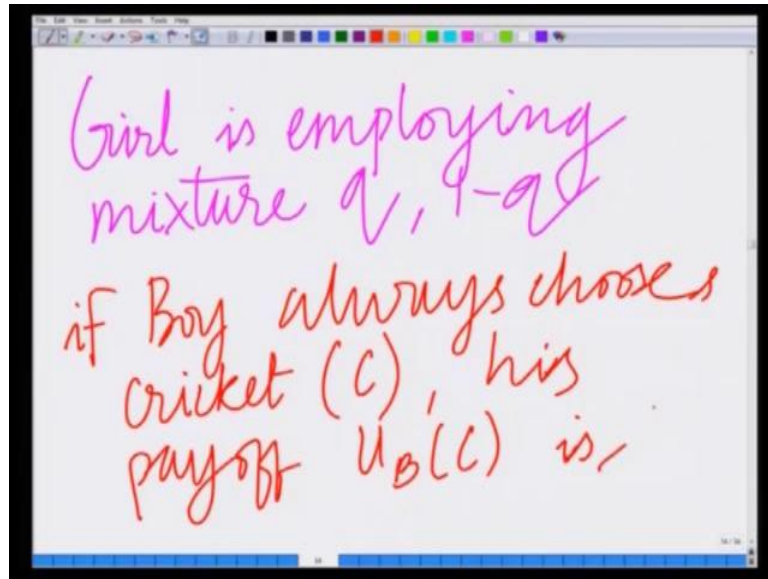 File Edit View Insert Actions Tools Help
Girl is employing
mixture q, 1-q
if Boy always chooses
cricket (C), his
payoff U_B(C) is,